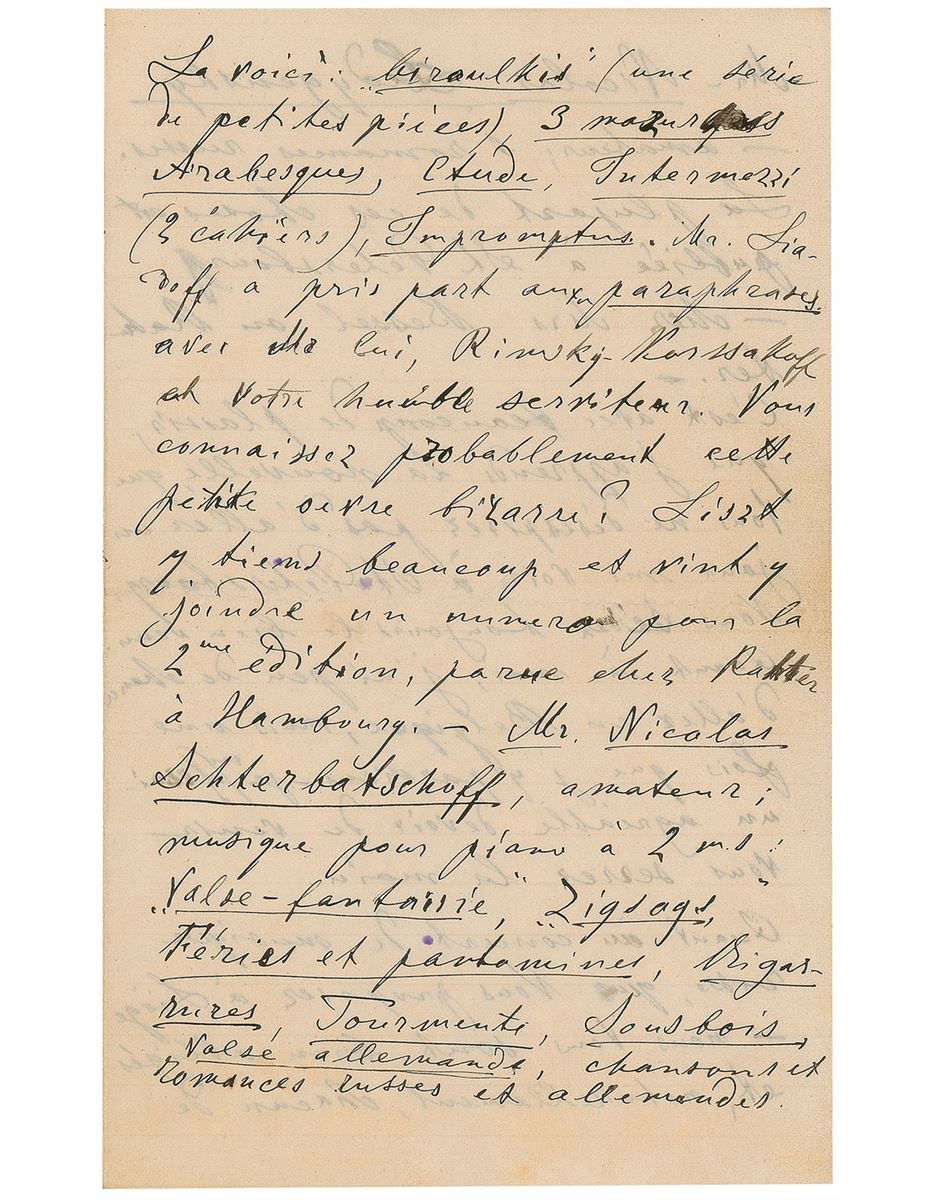 La voici: "biroulkis" (une série
de petites pièces), 3 mazurquas
Arabesques, Etude, Intermezzi
(2 cahïers), Impromptus. Mr. Lia-
doff à pris part aux paraphrases
avec lui, Rimsky-Korssakoff
et votre humble serviteur. Vous
connaissez probablement cette
petite oevre bizarre? Liszt
y tiend beaucoup et vint y
joindre un numero pour la
2me édition, parue chez Rahter
à Hambourg. — Mr. Nicolas
Schterbatschoff, amateur;
musique pour piano à 2 m.s:
"Valse-fantaisie", "Zigsags,"
Féries et pantomines, Bigar-
rures, Tourmente, Sousbois,
Valse allemande, chansons et
romances russes et allemandes.